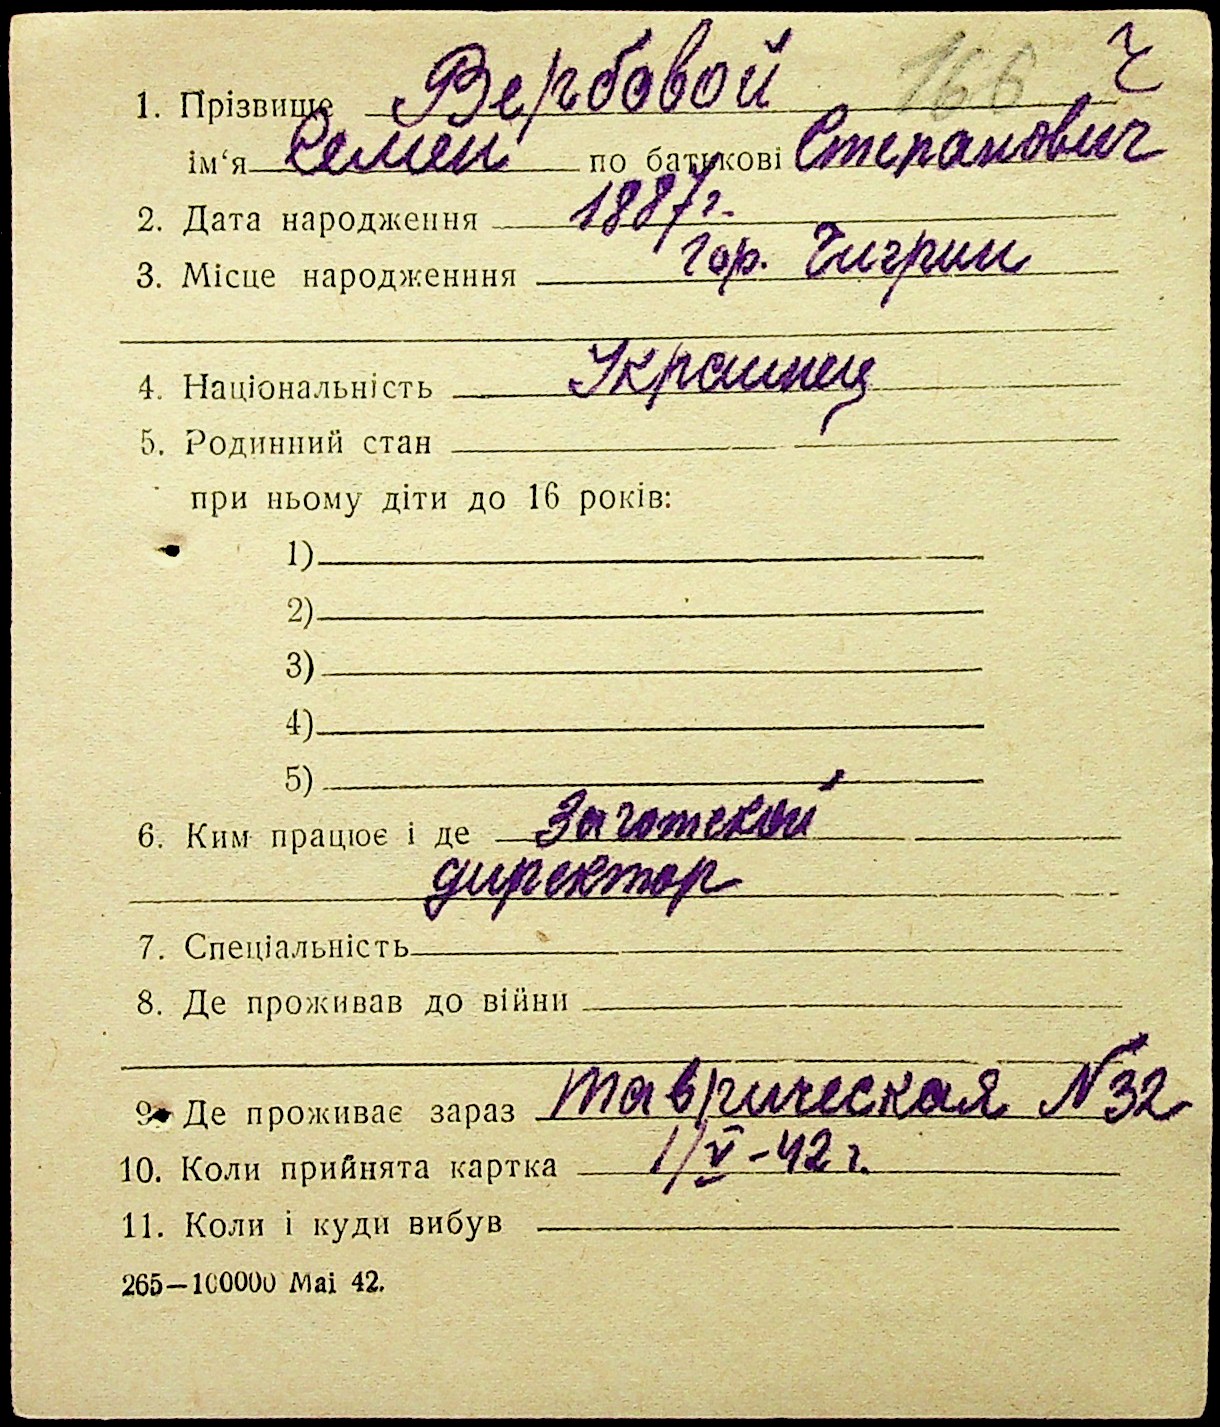 166 ч
1. Прізвище Вербовой
ім'я Семен по батькові Степанович
2. Дата народження 1887 г.
3. Місце народженння гор. Чигрин
4. Національність Украинец
5. Родинний стан
при ньому діти до 16 років:
1)
2)
3)
4)
5)
6. Ким працює і де Заготскот
директор
7. Спеціальність
8. Де проживав до війни
9. Де проживає зараз Таврическая N 32
10. Коли прийнята картка 1/V-42 г.
11. Коли і куди вибув
265—100000 Mai 42.